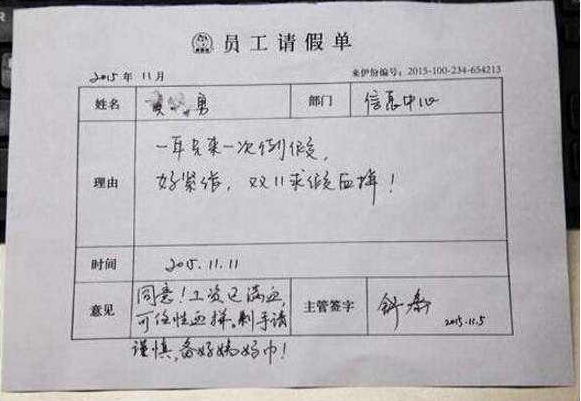 员工请假单
2015年11月
来伊份编号：2015-100-234-654213
姓名 勇 部门 信息中心
一年只来一次例假，
理由 好紧张，双11求假血拼！
时间 2015.11.11
同意！工资已满血，
意见 可任性血拼。剁手请 主管签字
2015.11.5
谨慎，备好姨妈巾！